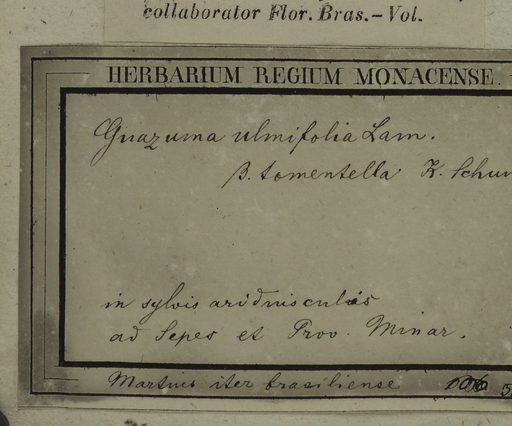 collaborator Flor. Bras. – Vol.
HERBARIUM REGIUM MONACENSE.
Guazuma ulmifolia Lam.
β. tomentella K. Schum
in sylvis aridiusculis
ad Sepes et Prov. Minar.
Martius iter brasiliense